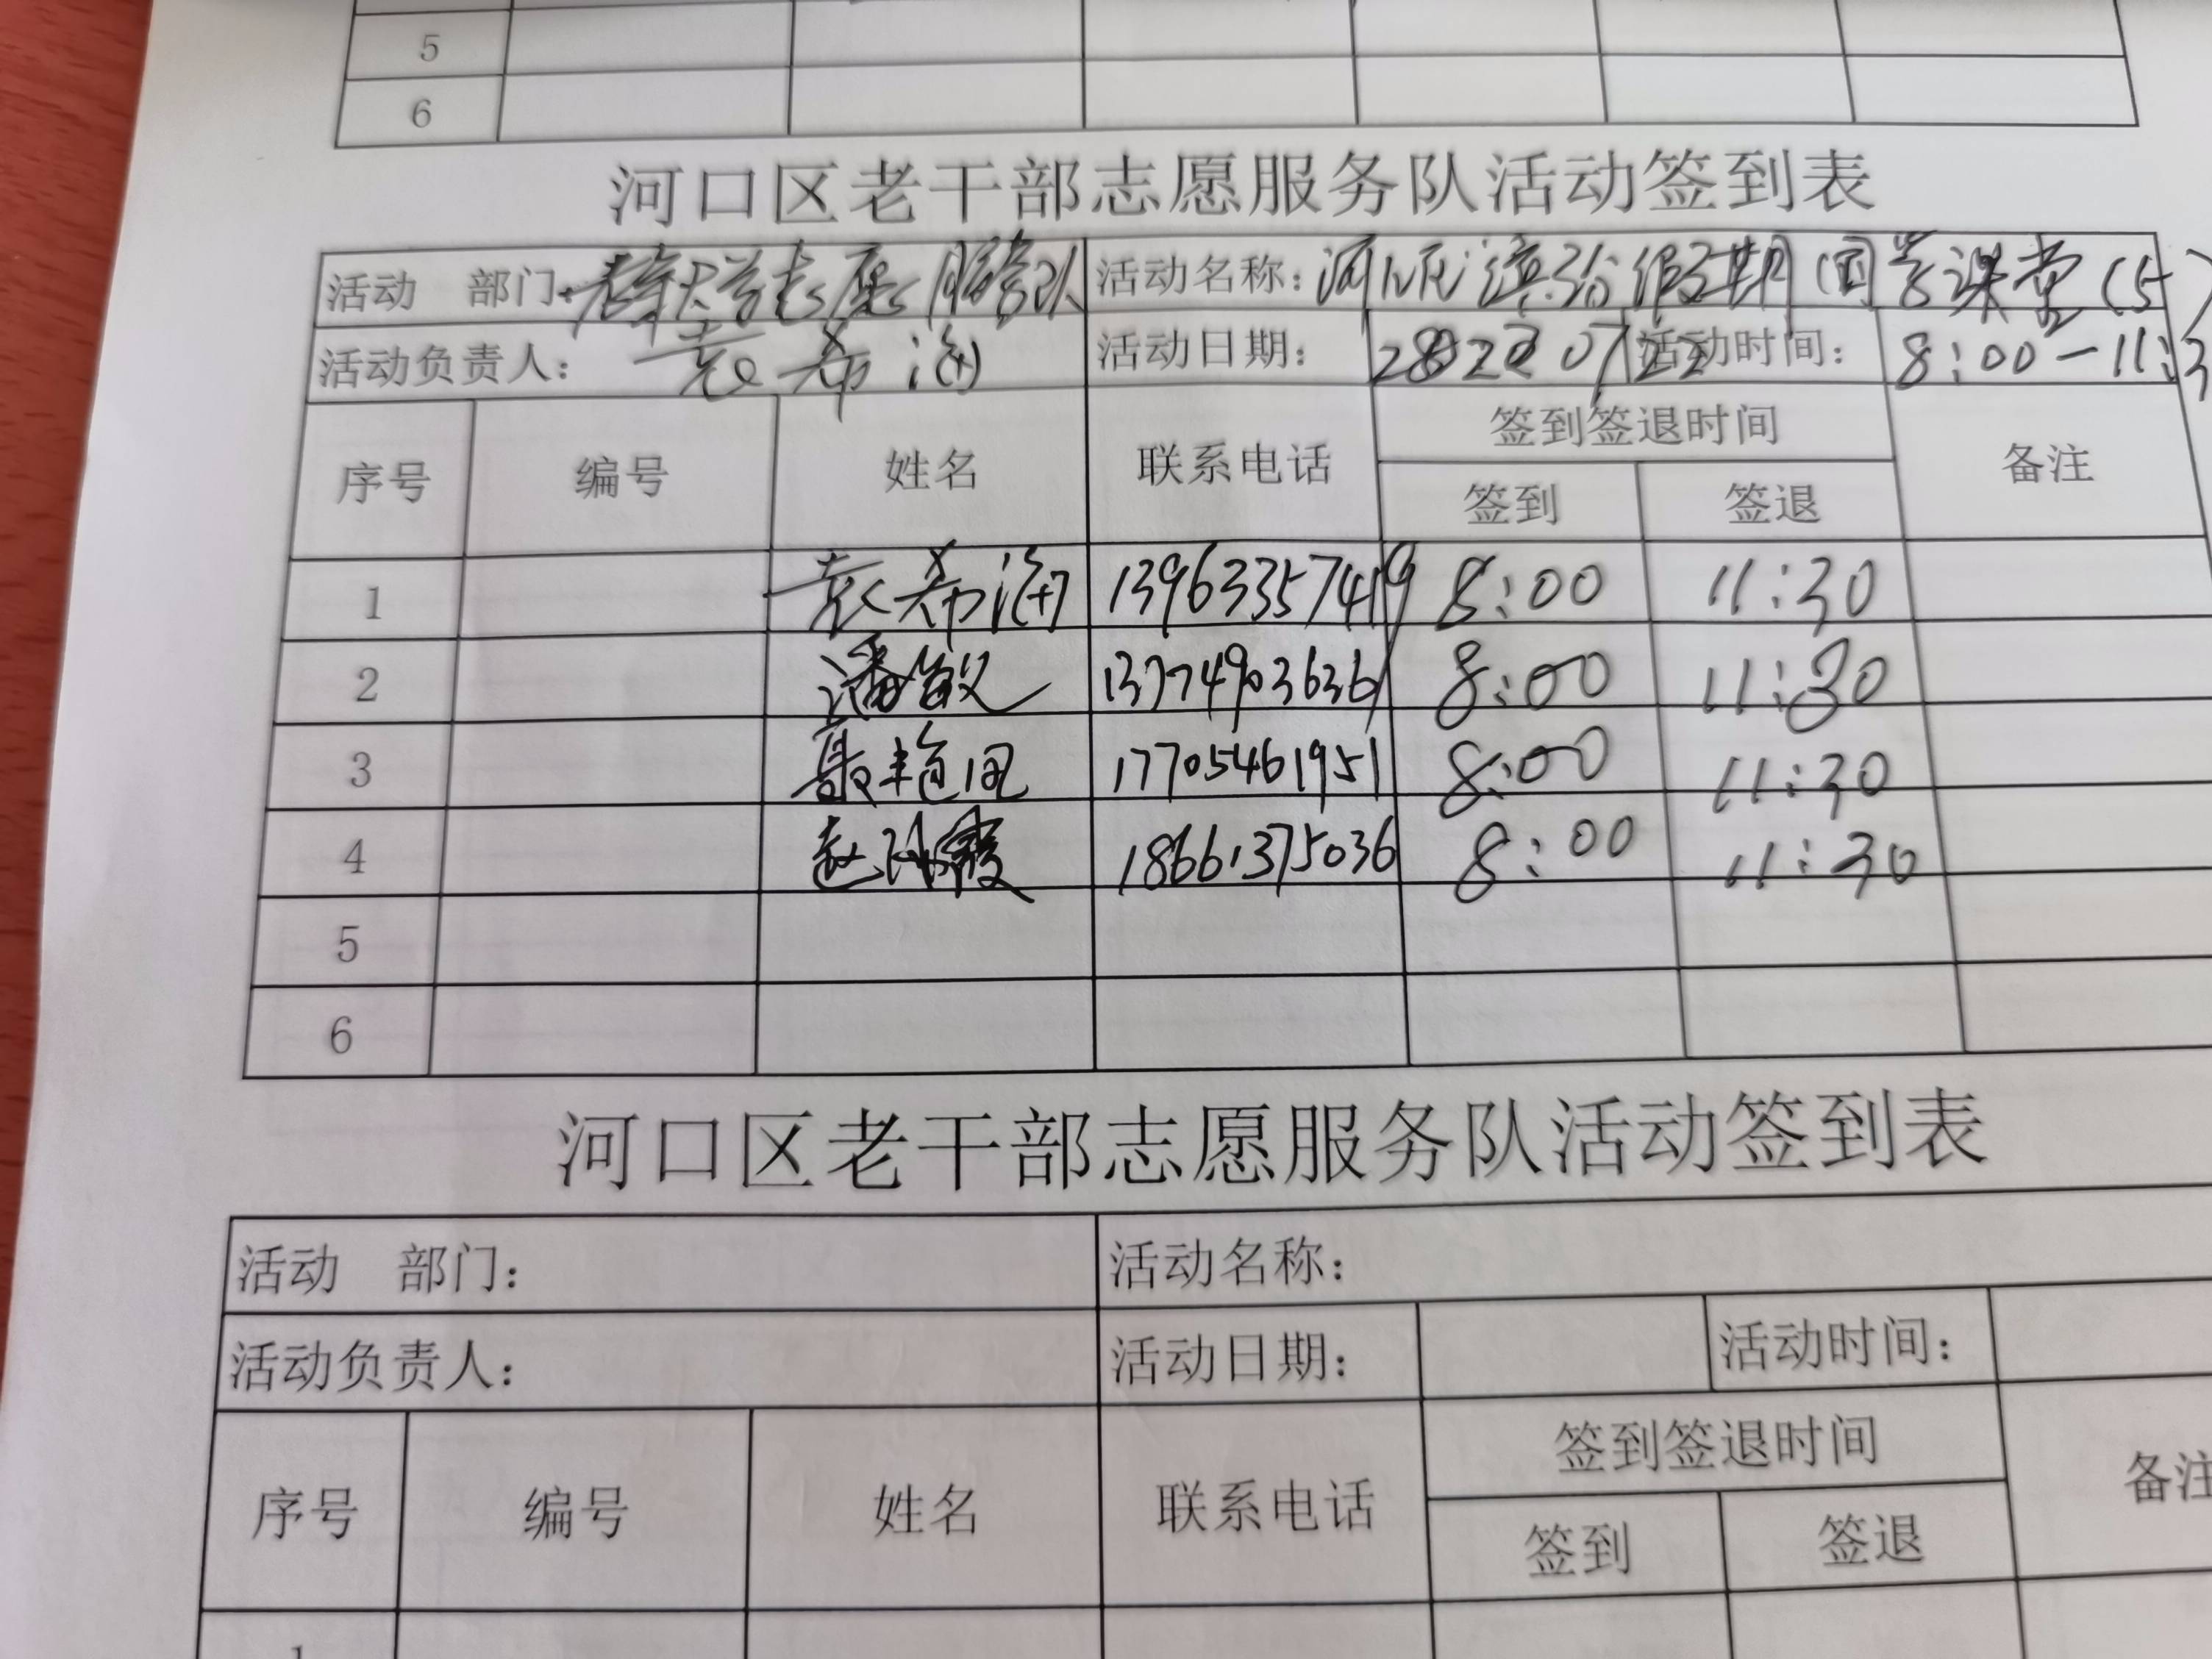 5
6
河口区老干部志愿服务队活动签到表
活动 部门: 志愿服务队 活动名称: 缤纷假期国学课堂(5)
活动负责人: 袁希海 活动日期: 2022 07 22 活动时间: 8:00-11:3
序号 编号 姓名 联系电话 签到签退时间 备注
签到 签退
1 袁希海 13963357419 8:00 11:30
2 潘敏 13774903636 8:00 11:30
3 17705461951 8:00 11:30
4 赵 霞 18661375036 8:00 11:30
5
6
河口区老干部志愿服务队活动签到表
活动 部门: 活动名称:
活动负责人: 活动日期: 活动时间:
序号 编号 姓名 联系电话 签到签退时间 备注
签到 签退
1